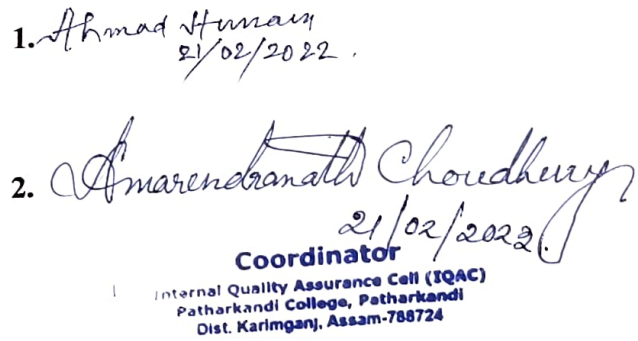 1. Ahmad Hussain
21/02/2022.
2. Amarendranath Choudhury
21/02/2022.
Coordinator
Internal Quality Assurance Cell (IQAC)
Patharkandi College, Patharkandi
Dist. Karimganj, Assam-788724